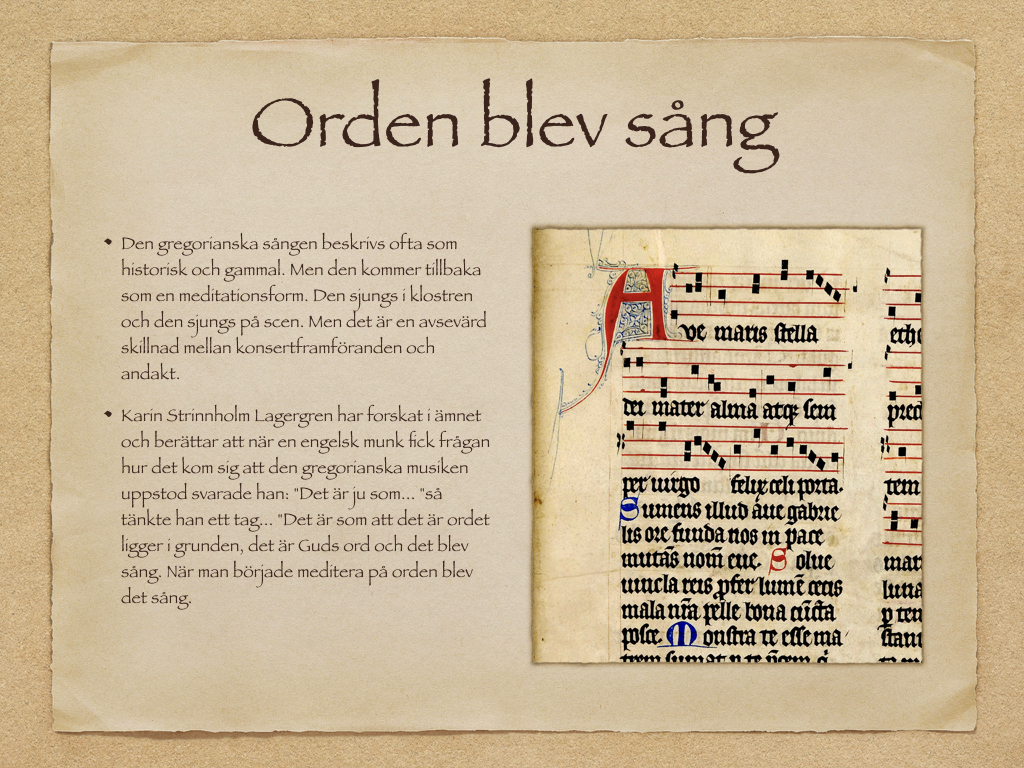 Orden blev sång
• Den gregorianska sången beskrivs ofta som
historisk och gammal. Men den kommer tillbaka
som en meditationsform. Den sjungs i klostren
och den sjungs på scen. Men det är en avsevärd
skillnad mellan konsertframföranden och
andakt.
• Karin Strinnholm Lagergren har forskat i ämnet
och berättar att när en engelsk munk fick frågan
hur det kom sig att den gregorianska musiken
uppstod svarade han: "Det är ju som... "så
tänkte han ett tag... "Det är som att det är ordet
ligger i grunden, det är Guds ord och det blev
sång. När man började meditera på orden blev
det sång.
Ave maris stella
dei mater alma atq; sem
per uirgo felix celi porta.
Sumens illud aue gabrie
lis ore funda nos in pace
mutãs nom̄ eue. Solue
uincla reis ꝓfer lumē cecis
mala nr̃a pelle bona cũcta
posce. Monstra te esse ma